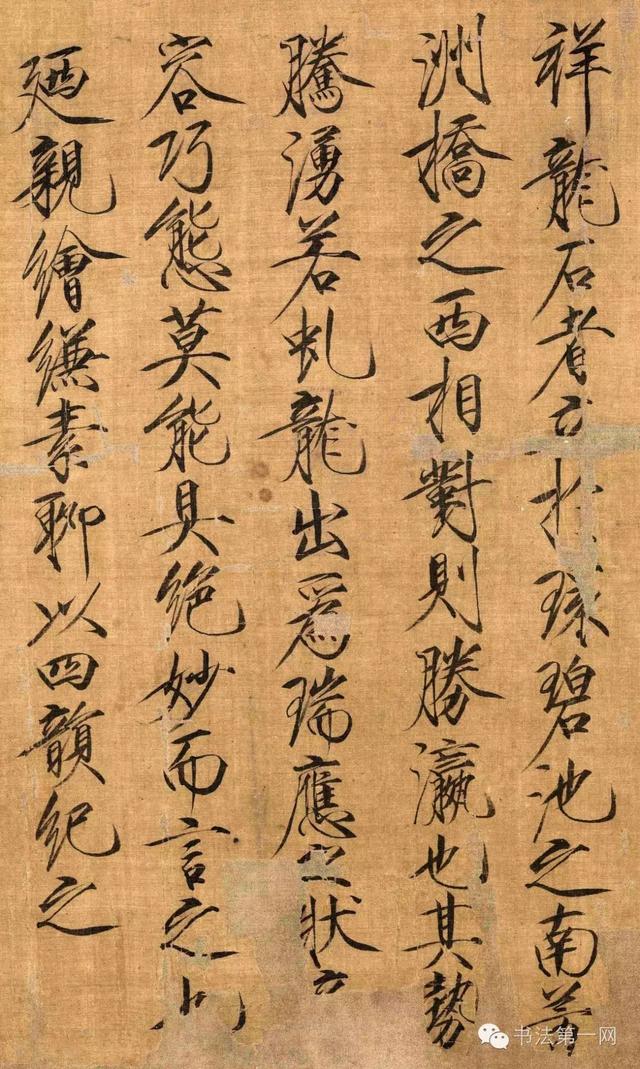 祥龍石者立於環碧池之南芳
洲橋之西相對則勝瀛也其勢
騰湧若虬龍出為瑞應之狀
容巧態莫能具絶妙而言之也
廼親繪縑素聊以四韻紀之
书法第一网